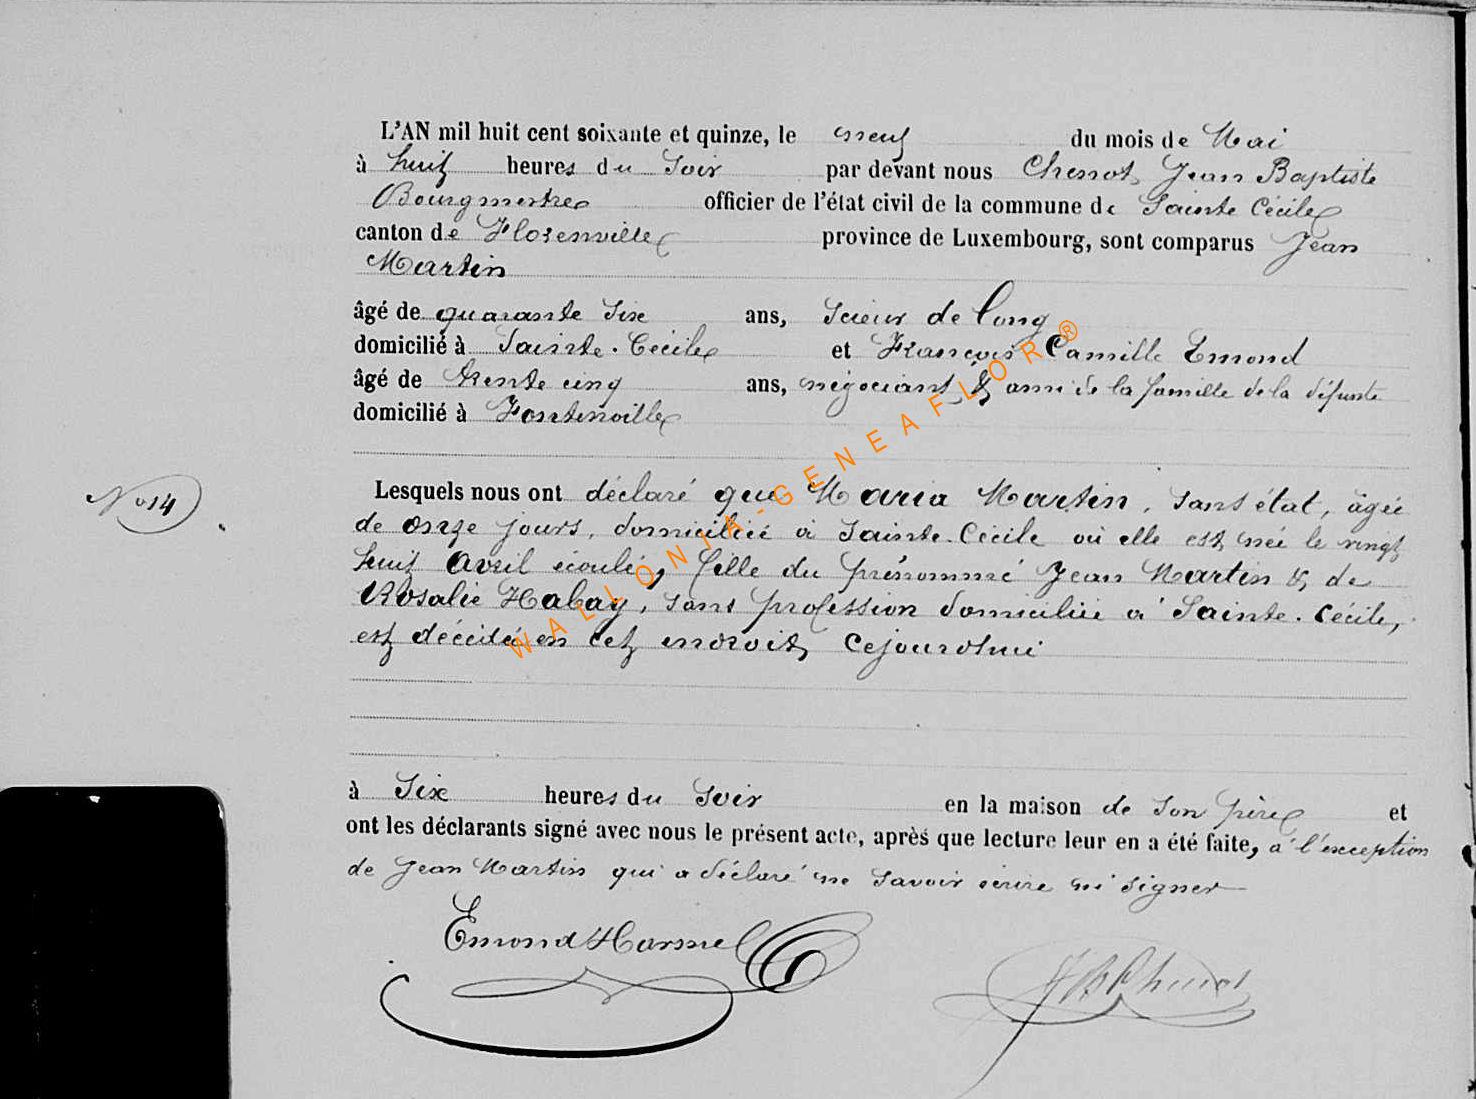 L'AN mil huit cent soixante et quinze, le neuf du mois de Mai
à huit heures du Soir par devant nous Chenot, Jean Baptiste
Bourgmestre officier de l'état civil de la commune de Sainte Cécile
canton de Florenville province de Luxembourg, sont comparus Jean
Martin
âgé de quarante Six ans, Scieur de long
domicilié à Sainte-Cécile et François Camille Emond
âgé de trente cinq ans, négociant & ami de la famille de la défunte
domicilié à Fontenoille
N° 14
Lesquels nous ont déclaré que Maria Martin, sans état, âgée
de onze jours, domiciliée à Sainte-Cécile où elle est née le vingt
huit Avril écoulé, fille du prénommé Jean Martin & de
Rosalie Habay, sans profession domiciliée à Sainte-Cécile,
est décédée en cet endroit, cejourdhui
à Six heures du Soir en la maison de son père et
ont les déclarants signé avec nous le présent acte, après que lecture leur en a été faite, à l'exception
de Jean Martin qui a déclaré ne savoir écrire ni signer
Emond Harmel
JB Chenot
WALLONIA-GENEAFLOR®